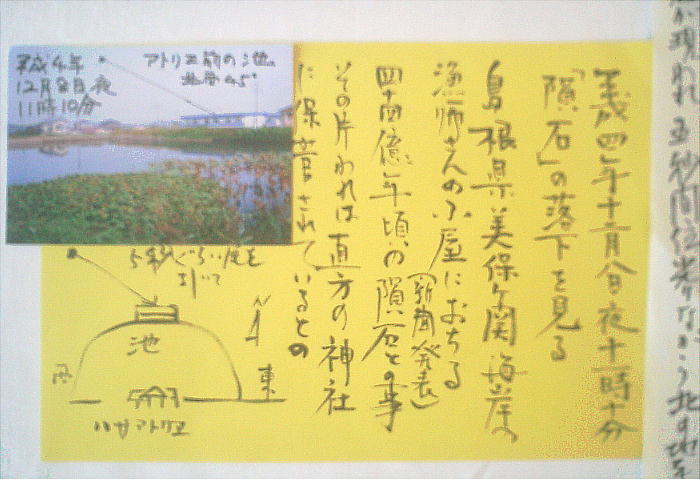 平成四年十二月八日夜十一時十分
「隕石」の落下を見る
島根県美保ヶ関海岸の
漁師さんの小屋におちる
(新聞発表)
四十四億年頃の隕石との事
その片われは直方の神社
に保管されているとの
平成4年
12月8日夜
11時10分
アトリエ前の池
北西45°
5米ぐらい尾を
引いて
池
西
東
N
アトリエ
が現われ
北の地平